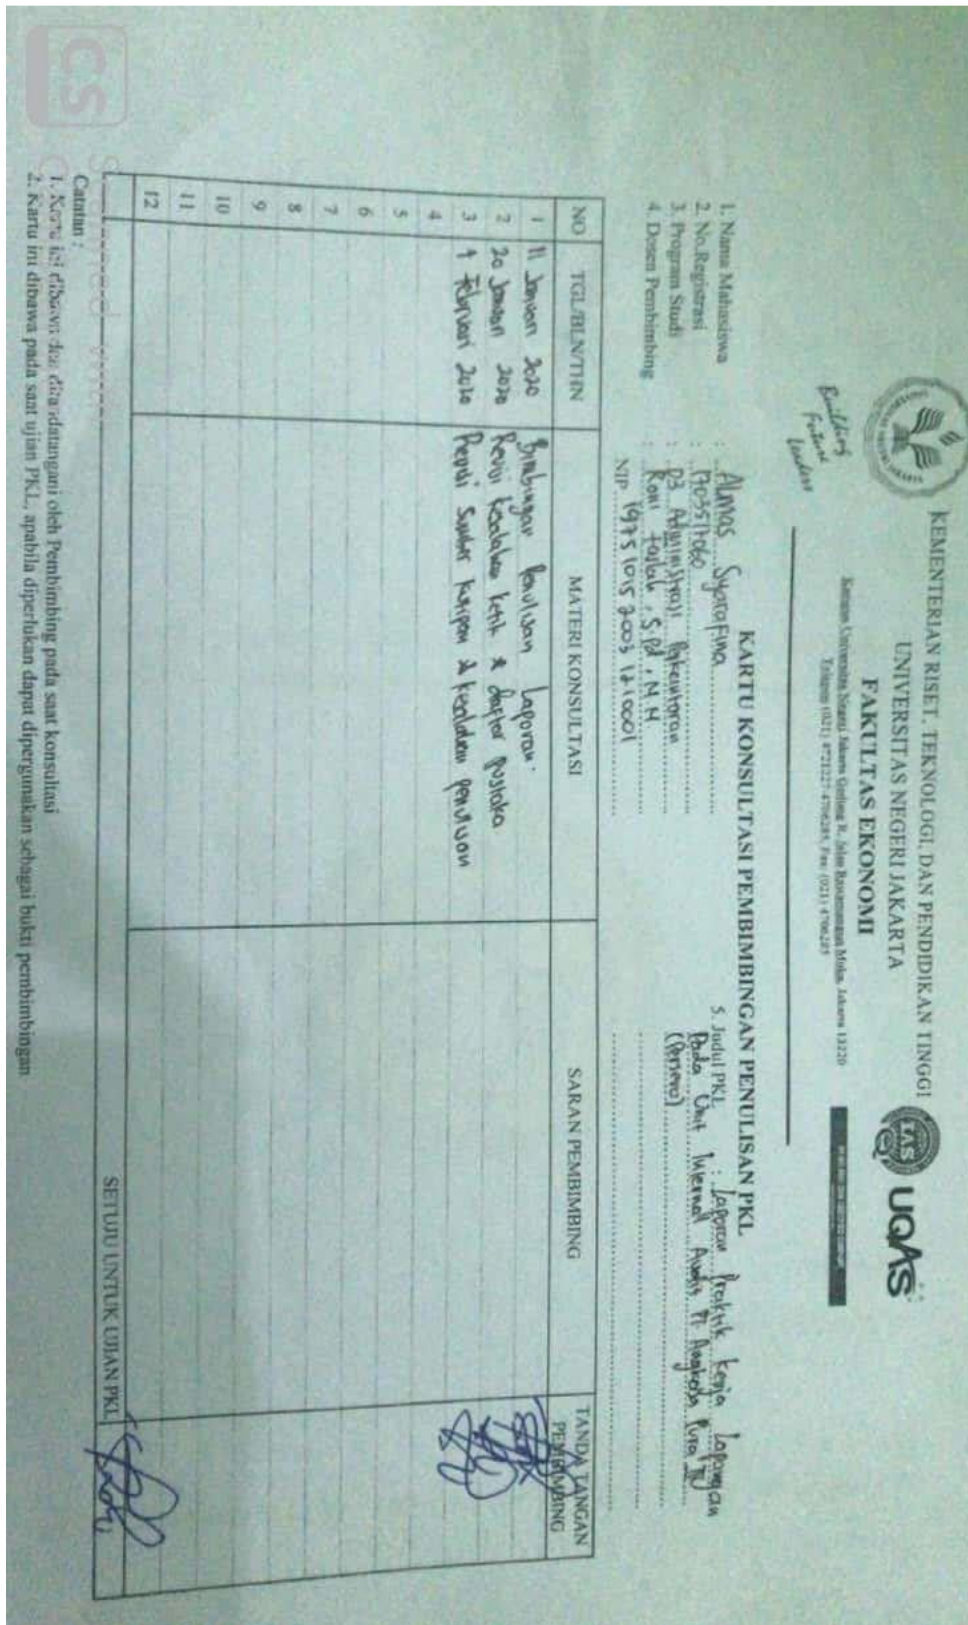 KEMENTERIAN RISET, TEKNOLOGI, DAN PENDIDIKAN TINGGI
UNIVERSITAS NEGERI JAKARTA
FAKULTAS EKONOMI
Kampus Universitas Negeri Jakarta Gedung R, Jalan Rawamangun Muka, Jakarta 13220
Telepon (021) 4721227/4706285, Fax: (021) 4706285
UQAS
TAS
Building
Future
Leaders
KARTU KONSULTASI PEMBIMBINGAN PENULISAN PKL
1. Nama Mahasiswa : Almas Syarafina
2. No.Registrasi : 1703517060
3. Program Studi : D3 Administrasi Perkantoran
4. Dosen Pembimbing : Roni Faslah, S.Pd, M.M
NIP. 19751015 2003 12 1 0001
5. Judul PKL : Laporan Praktik Kerja Lapangan
Pada Unit Internal Audit PT Angkasa Pura II
(Persero)
NO TGL/BLN/THN MATERI KONSULTASI SARAN PEMBIMBING TANDA TANGAN PEMBIMBING
1 11 Januari 2020 Bimbingan Penulisan Laporan
2 20 Januari 2020 Revisi Kesalahan ketik & daftar pustaka
3 4 Februari 2020 Revisi Sumber kutipan & kesalahan penulisan
4
5
6
7
8
9
10
11
12
SETUJU UNTUK UJIAN PKL
Catatan :
1. Kartu ini dibawa dan ditandatangani oleh Pembimbing pada saat konsultasi
2. Kartu ini dibawa pada saat ujian PKL, apabila diperlukan dapat dipergunakan sebagai bukti pembimbingan
CS